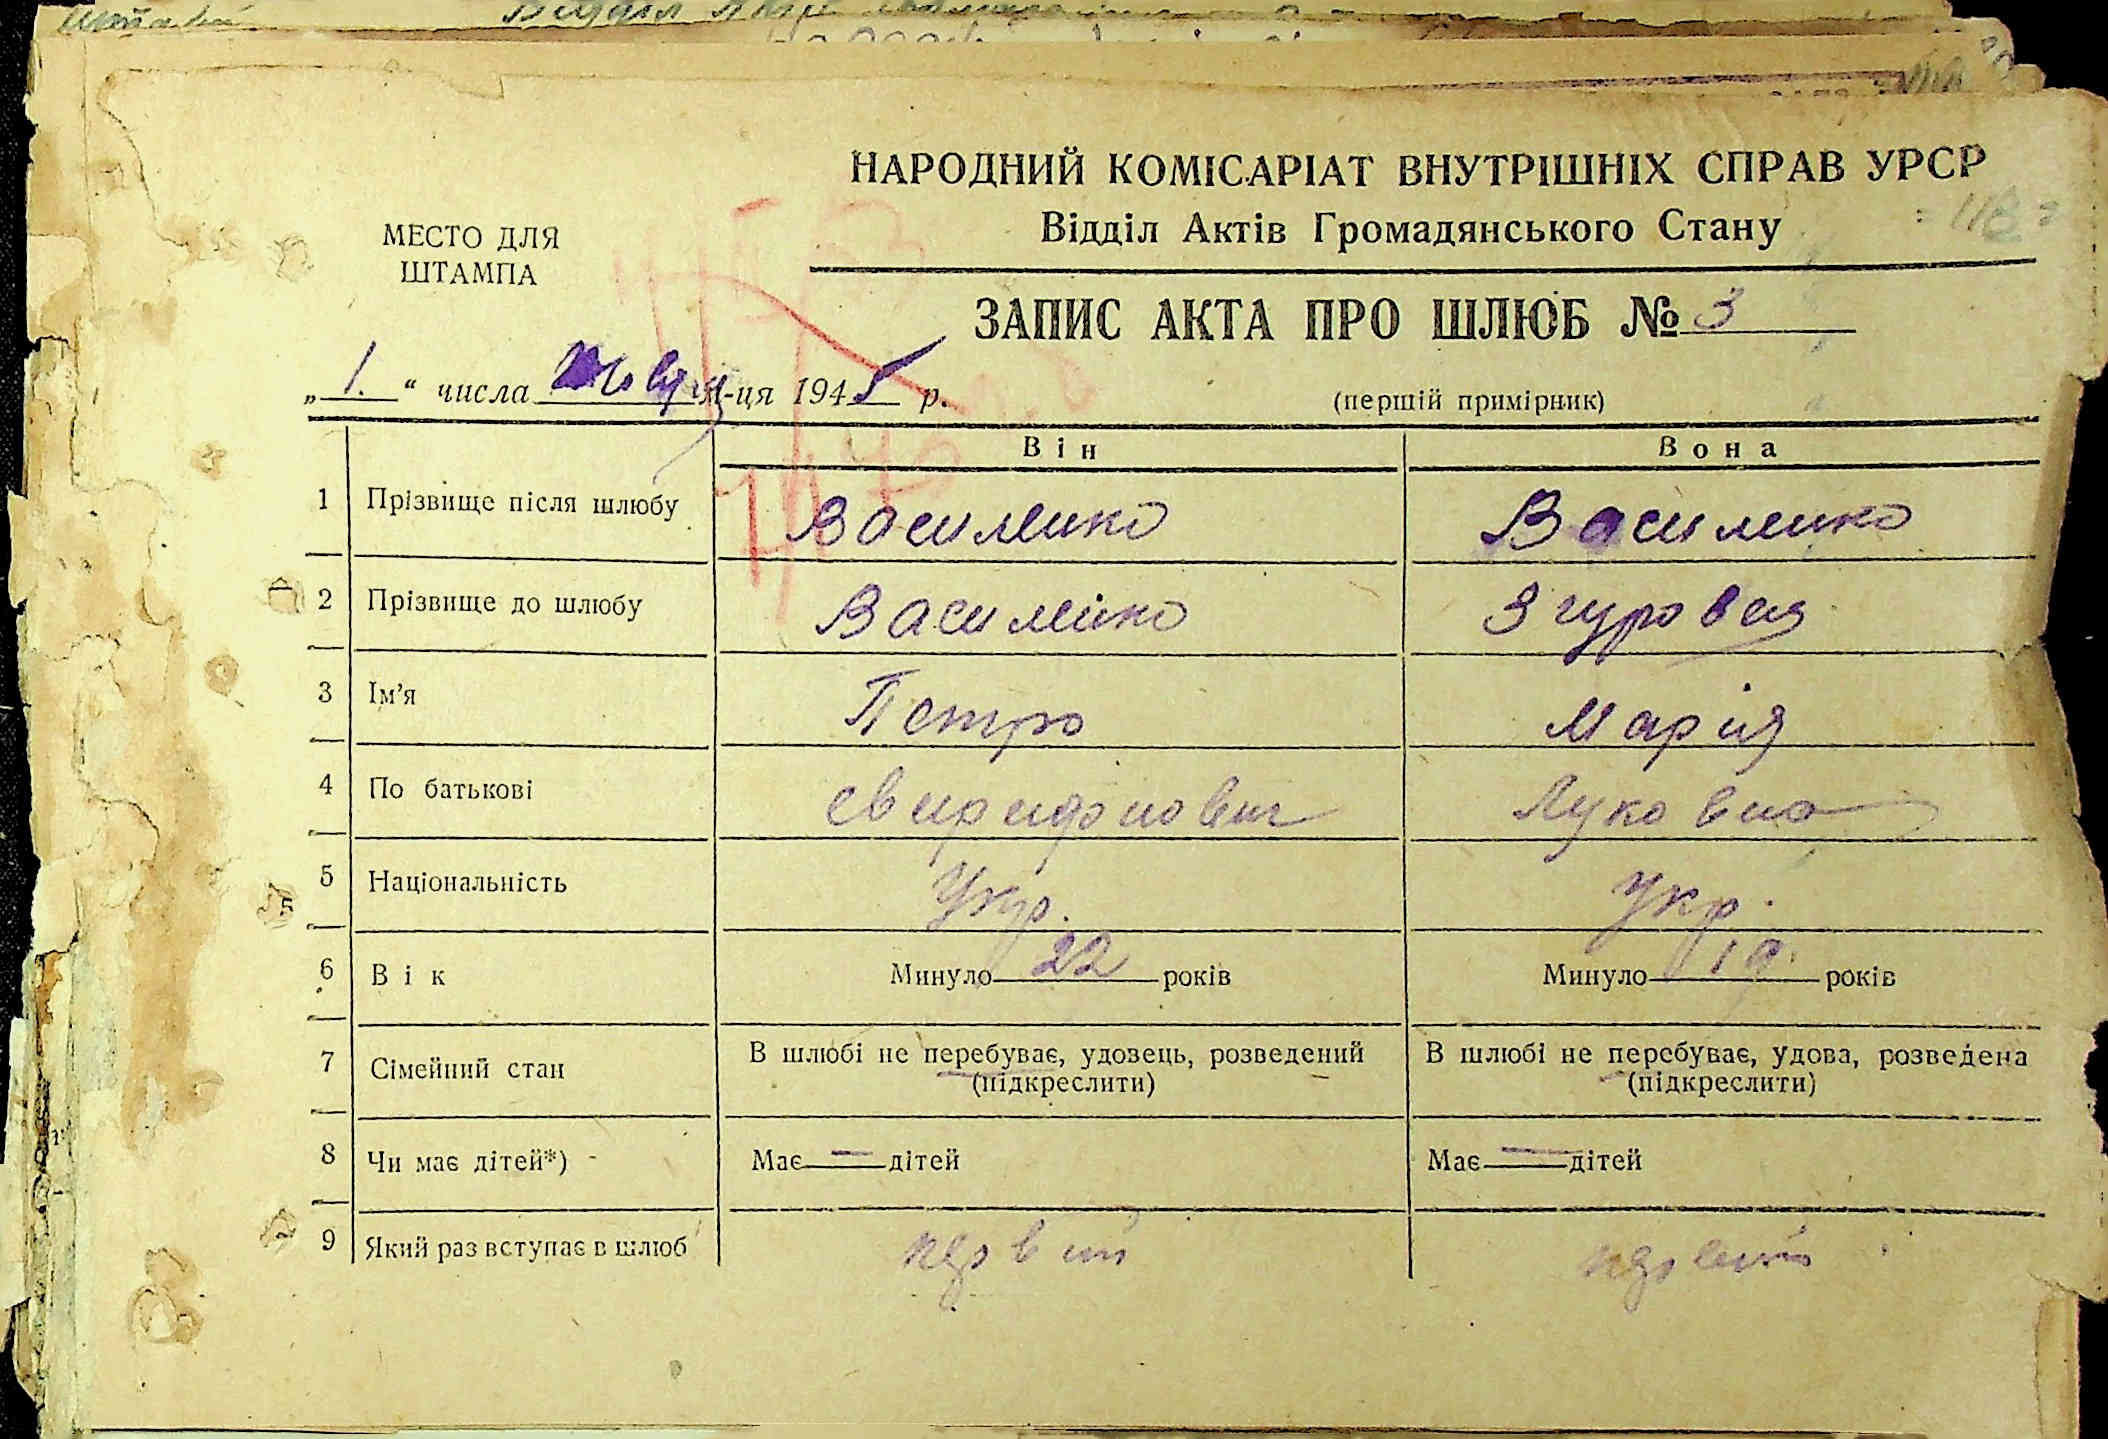 НАРОДНИЙ КОМІСАРІАТ ВНУТРІШНІХ СПРАВ УРСР
Відділ Актів Громадянського Стану
МЕСТО ДЛЯ
ШТАМПА
ЗАПИС АКТА ПРО ШЛЮБ № 3
„1.“ числа м-ця 1945 р.
(першій примірник)
Він Вона
1 Прізвище після шлюбу Василенко Василенко
2 Прізвище до шлюбу Василенко Згуровея
3 Ім'я Петро Мария
4 По батькові Свиридонович Луковна
5 Національність Укр. Укр.
6 Вік Минуло 22 років Минуло 19 років
7 Сімейний стан В шлюбі не перебуває, удовець, розведений (підкреслити) В шлюбі не перебуває, удова, розведена (підкреслити)
8 Чи має дітей*) Має — дітей Має — дітей
9 Який раз вступає в шлюб первий первий